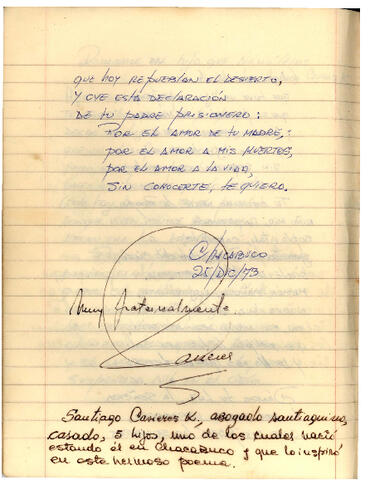 QUE HOY REPUEBLAN EL DESIERTO,
Y QUE ESTA DECLARACIÓN
DE TU PADRE PRISIONERO:
POR EL AMOR DE TU MADRE,
POR EL AMOR A MIS MUERTOS,
POR EL AMOR A LA VIDA,
SIN CONOCERTE, TE QUIERO.
CHACABUCO
25/DIC/73
Muy fraternalmente
Santiago Cavieres K., abogado santiaguino,
casado, 5 hijos, uno de los cuales nació
estando él en Chacabuco y que lo inspiró
en este hermoso poema.